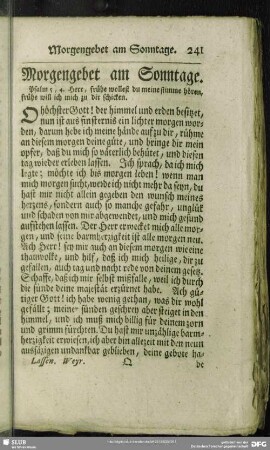 Morgengebet am Sonntage. 241
Morgengebet am Sonntage.
Psalm 5, 4. Herr, frühe wollest du meine stimme hören,
frühe will ich mich zu dir schicken.
O höchster Gott! der himmel und erden besitzet,
nun ist aus finsternis ein lichter morgen wor-
den, darum hebe ich meine hände auf zu dir, rühme
an diesem morgen deine güte, und bringe dir mein
opfer, daß du mich so väterlich behütet, und diesen
tag wieder erleben lassen. Ich sprach, da ich mich
legte: möchte ich bis morgen leben! wenn man
mich morgen sucht, werde ich nicht mehr da seyn, du
hast mir nicht allein gegeben den wunsch meines
hertzens, sondern auch so manche gefahr, unglük
und schaden von mir abgewendet, und mich gesund
aufstehen lassen. Der Herr erwecket mich alle mor-
gen, und seine barmhertzigkeit ist alle morgen neu.
Ach Herr! sey mir auch an diesem morgen wie eine
thauwolke, und hilf, daß ich mich heilige, dir zu
gefallen, auch tag und nacht rede von deinem gesetz.
Schaffe, daß ich mir selbst mißfalle, weil ich durch
die sünde deine majestät erzürnet habe. Ach gü-
tiger Gott! ich habe wenig gethan, was dir wohl
gefällt; meine sünden geschrey aber steiget in den
himmel, und ich muß mich billig für deinem zorn
und grimm fürchten. Du hast mir unzählige barm-
herzigkeit erwiesen, ich aber bin allezeit mit den neun
aussäzigen undankbar geblieben, deine gebote ha-
Lassen. Weyr. Q be
SLUB
DFG